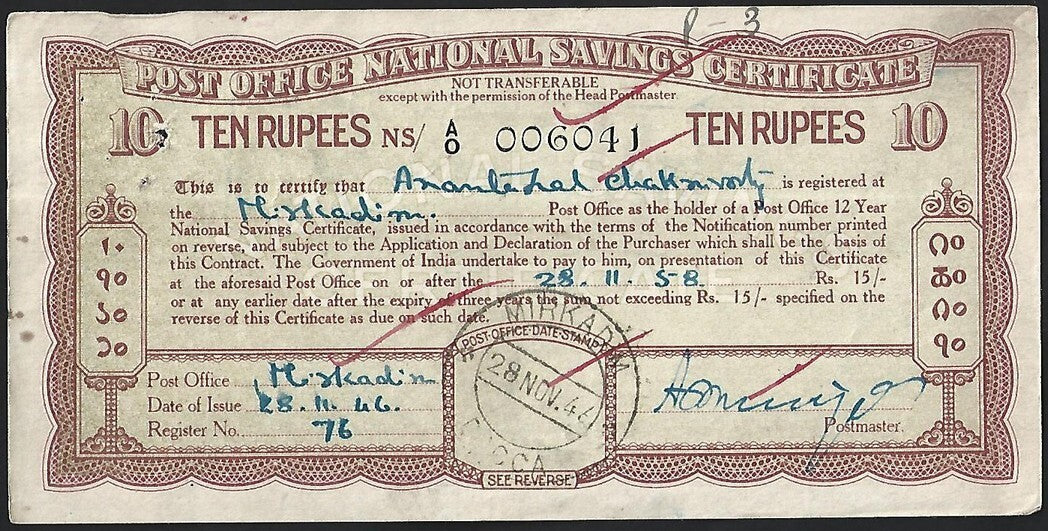 P-3
POST OFFICE NATIONAL SAVINGS CERTIFICATE
NOT TRANSFERABLE
except with the permission of the Head Postmaster.
10 TEN RUPEES NS/ A/O 006041 TEN RUPEES 10
This is to certify that Chakravorty is registered at
the Mirkadim. Post Office as the holder of a Post Office 12 Year
National Savings Certificate, issued in accordance with the terms of the Notification number printed
on reverse, and subject to the Application and Declaration of the Purchaser which shall be the basis of
this Contract. The Government of India undertake to pay to him, on presentation of this Certificate
at the aforesaid Post Office on or after the 28. 11. 58. Rs. 15/-
or at any earlier date after the expiry of three years the sum not exceeding Rs. 15/- specified on the
reverse of this Certificate as due on such date.
MIRKADIM
POST·OFFICE·DATE·STAMP
28 NOV. 46
DACCA
Post Office Mirkadim
Date of Issue 28. 11. 46.
Register No. 76
Postmaster.
SEE REVERSE